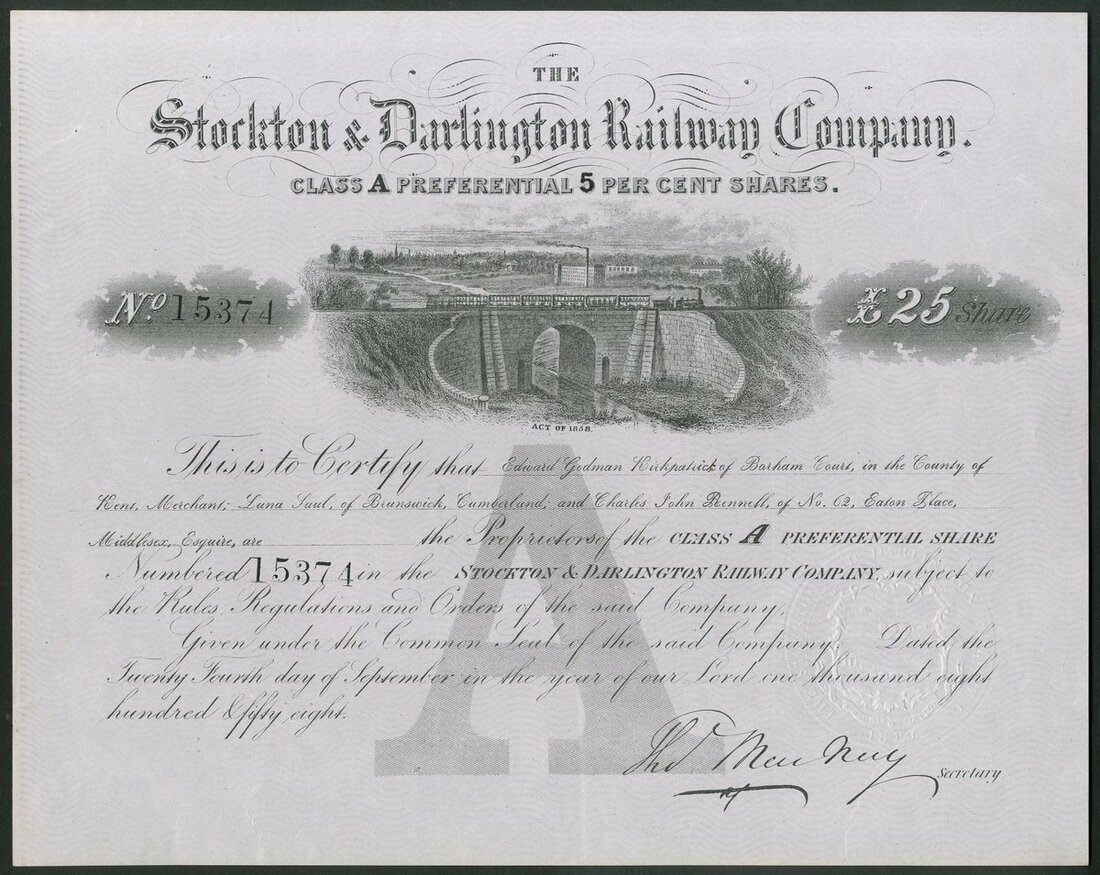 THE
Stockton & Darlington Railway Company.
CLASS A PREFERENTIAL 5 PER CENT SHARES.
No. 15374
£25 Share
ACT OF 1858.
This is to Certify that Edward Godman Kirkpatrick of Barham Court, in the County of
Kent, Merchant; Luna Saul, of Brunswick, Cumberland; and Charles John Bennell, of No. 62, Eaton Place,
Middlesex, Esquire, are the Proprietors of the CLASS A PREFERENTIAL SHARE
Numbered 15374 in the STOCKTON & DARLINGTON RAILWAY COMPANY, subject to
the Rules, Regulations and Orders of the said Company.
Given under the Common Seal of the said Company Dated the
Twenty Fourth day of September in the year of our Lord one thousand eight
hundred & fifty eight.
Thos. MacNay
Secretary
A